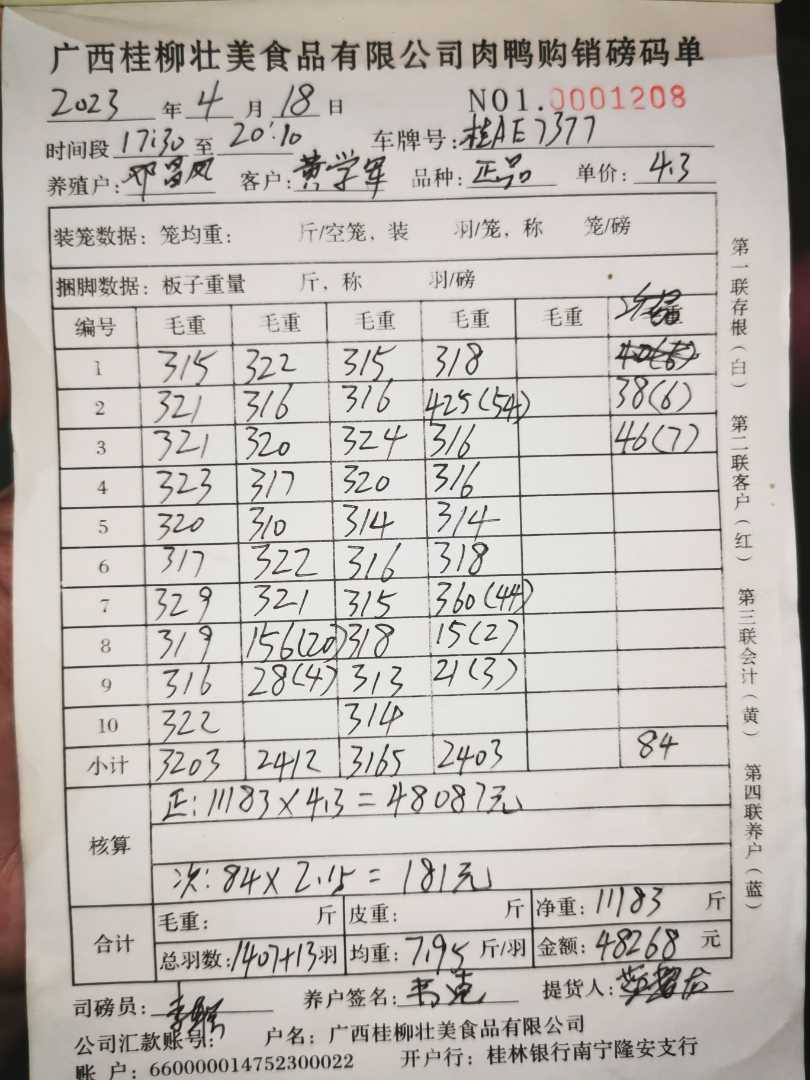 广西桂柳壮美食品有限公司肉鸭购销磅码单
2023 年 4 月 18 日 NO1.0001208
时间段 17:30 至 20:10 车牌号: 桂AE7377
养殖户: 邓昌凤 客户: 黄学军 品种: 正品 单价: 4.3
装笼数据: 笼均重: 斤/空笼, 装 羽/笼, 称 笼/磅
捆脚数据: 板子重量 斤, 称 羽/磅
编号 毛重 毛重 毛重 毛重 毛重 次品
1 315 322 315 318
2 321 316 316 425(54) 38(6)
3 321 320 324 316 46(7)
4 323 317 320 316
5 320 310 314 314
6 317 322 316 318
7 329 321 315 360(44)
8 319 156(20) 318 15(2)
9 316 28(4) 313 21(3)
10 322 314
小计 3203 2412 3165 2403 84
核算 正: 11183×4.3=48087元
次: 84×2.15=181元
合计 毛重: 斤 皮重: 斤 净重: 11183 斤
总羽数: 1407+13 羽 均重: 7.95 斤/羽 金额: 48268 元
司磅员: 养户签名: 提货人:
公司汇款账号: 户名: 广西桂柳壮美食品有限公司
账 户: 660000014752300022 开户行: 桂林银行南宁隆安支行
第一联存根(白) 第二联客户(红) 第三联会计(黄) 第四联养户(蓝)